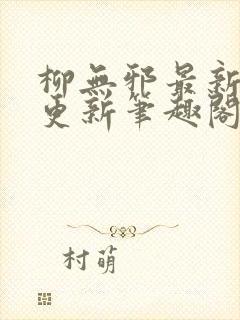 柳無邪最新
更新筆趣閣
村萌